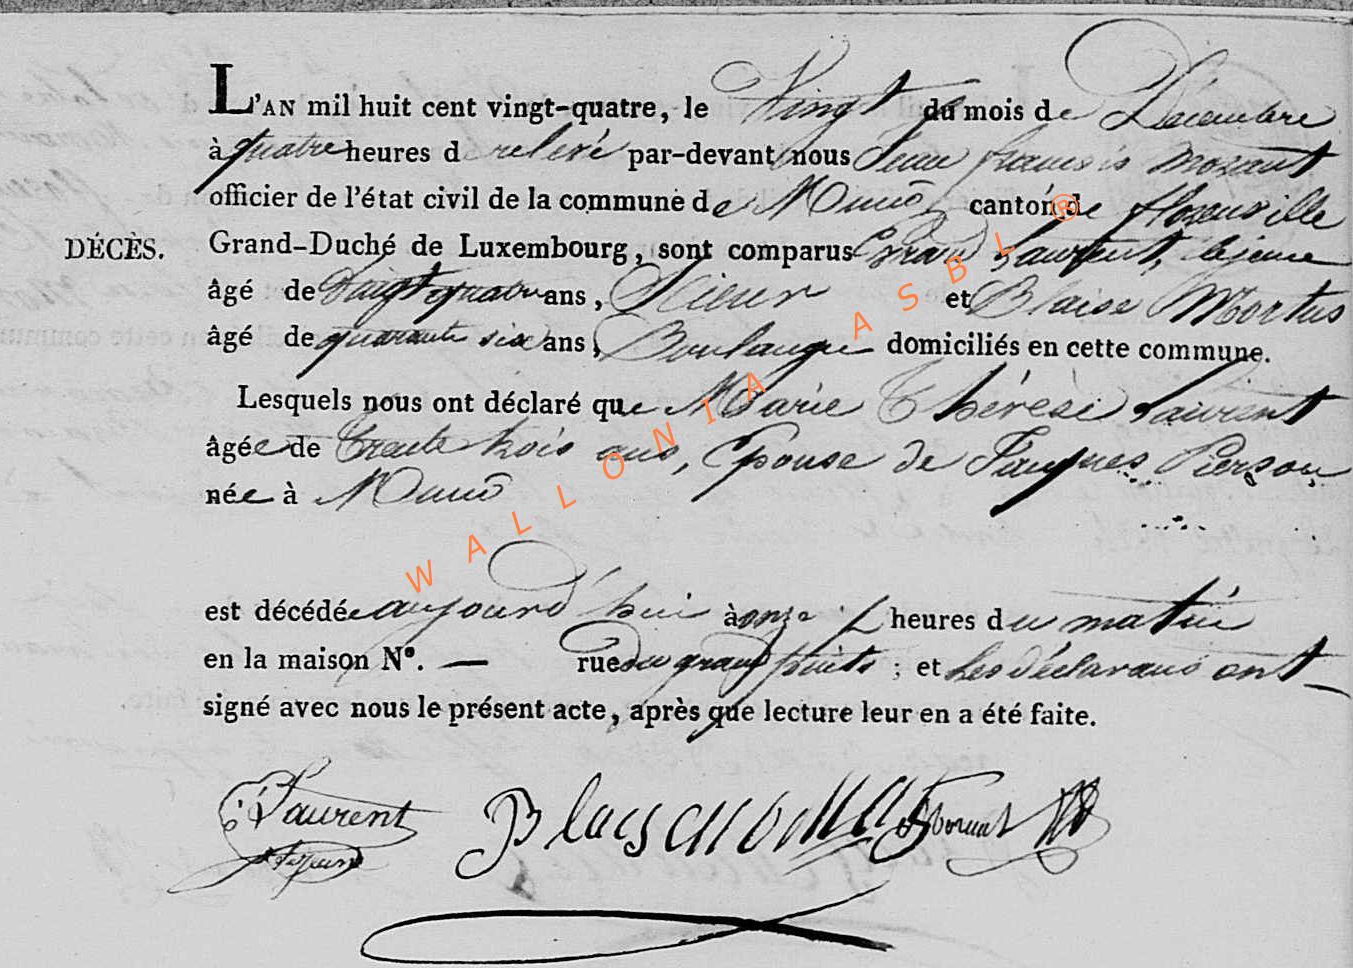 L'AN mil huit cent vingt-quatre, le Vingt du mois de Décembre
à quatre heures d relevé par-devant nous Jean françois morant
officier de l'état civil de la commune de Muno canton de florenville
DÉCÈS.
Grand-Duché de Luxembourg, sont comparus Laurent, lejeune
âgé de Vingt quatre ans, et Blaise Mortus
âgé de quarante six ans, Boulanger domiciliés en cette commune.
Lesquels nous ont déclaré que Marie Thérèse Laurent
âgée de trente trois ans, Epouse de Jacques Pierson
née à Muno
est décédée aujourd'hui à onze heures du matin
en la maison N°. — rue du grand puits ; et les déclarans ont
signé avec nous le présent acte, après que lecture leur en a été faite.
Laurent Morant
lejeune
WALLONIA ASBL ®